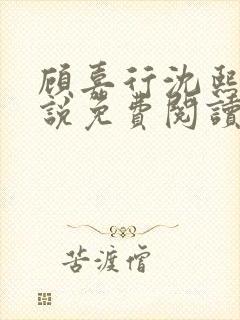 顾嘉行沈熙
說免費閱讀
苦渡僧